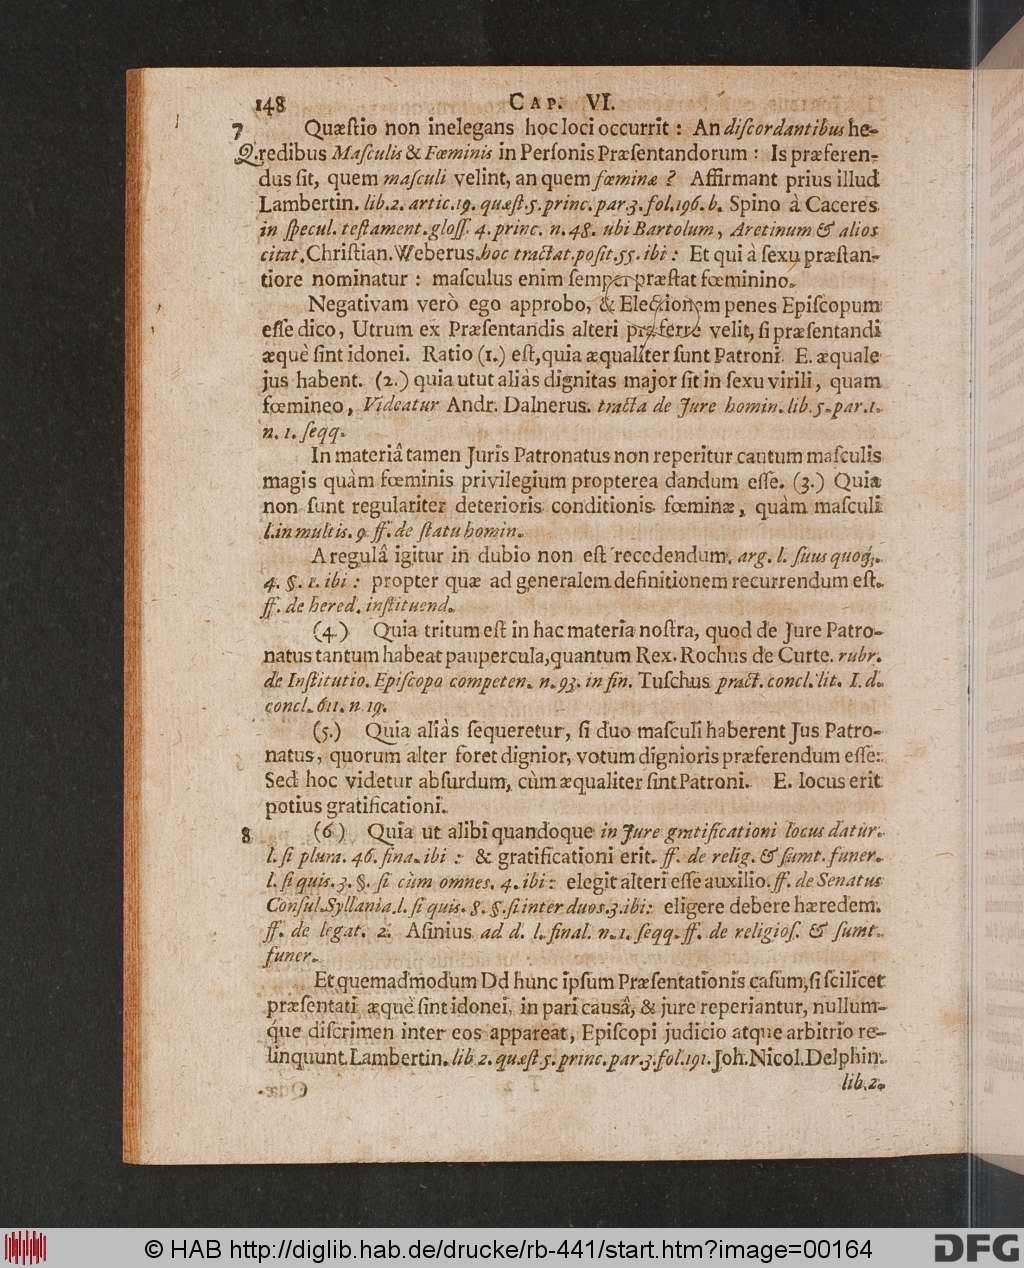 148 CAP. VI.
7 Quæſtio non inelegans hoc loci occurrit : An diſcordantibus he-
Q. redibus Maſculis & Fœminis in Perſonis Præſentandorum : Is præferen-
dus ſit, quem maſculi velint, an quem fœminæ ? Affirmant prius illud
Lambertin. lib. 2. artic. 19. quæſt. 5. princ. par. 3. fol. 196. b. Spino à Caceres
in ſpecul. teſtament. gloſſ. 4. princ. n. 48. ubi Bartolum, Aretinum & alios
citat. Chriſtian. Weberus. hoc tractat. poſit. 55. ibi : Et qui à ſexu præſtan-
tiore nominatur : maſculus enim ſemper præſtat fœminino.
Negativam verò ego approbo, & Electionem penes Epiſcopum
eſſe dico, Utrum ex Præſentandis alteri præferre velit, ſi præſentandi
æquè ſint idonei. Ratio (1.) eſt, quia æqualiter ſunt Patroni. E. æquale
jus habent. (2.) quia utut aliàs dignitas major ſit in ſexu virili, quam
fœmineo, Videatur Andr. Dalnerus. tracta de Jure homin. lib. 5. par. 1.
n. 1. ſeqq.
In materiâ tamen Juris Patronatus non reperitur cautum maſculis
magis quàm fœminis privilegium propterea dandum eſſe. (3.) Quia
non ſunt regulariter deterioris conditionis fœminæ, quàm maſculi
l. in multis. 9. ff. de ſtatu homin.
A regulâ igitur in dubio non eſt recedendum. arg. l. ſuus quoq;.
4. §. 1. ibi : propter quæ ad generalem definitionem recurrendum eſt.
ff. de hered. inſtituend.
(4.) Quia tritum eſt in hac materia noſtra, quod de Jure Patro-
natus tantum habeat paupercula, quantum Rex. Rochus de Curte. rubr.
de Inſtitutio. Epiſcopo competen. n. 93. in fin. Tuſchus pract. concl. lit. I. d.
concl. 611. n. 19.
(5.) Quia aliàs ſequeretur, ſi duo maſculi haberent Jus Patro-
natus, quorum alter foret dignior, votum dignioris præferendum eſſe:
Sed hoc videtur abſurdum, cùm æqualiter ſint Patroni. E. locus erit
potius gratificationi.
8 (6.) Quia ut alibi quandoque in Jure gratificationi locus datur.
l. ſi plura. 46. fina. ibi : & gratificationi erit. ff. de relig. & ſumt. funer.
l. ſi quis. 3. §. ſi cùm omnes. 4. ibi : elegit alteri eſſe auxilio. ff. de Senatus
Conſul. Syllania. l. ſi quis. 8. §. ſi inter duos. 3. ibi : eligere debere hæredem.
ff. de legat. 2. Aſinius ad d. l. final. n. 1. ſeqq. ff. de religioſ. & ſumt.
funer.
Et quemadmodum Dd hunc ipſum Præſentationis caſum, ſi ſcilicet
præſentati æquè ſint idonei, in pari causâ, & jure reperiantur, nullum-
que diſcrimen inter eos appareat, Epiſcopi judicio atque arbitrio re-
linquunt. Lambertin. lib 2. quæſt 5. princ. par. 3. fol. 191. Joh. Nicol. Delphin.
lib. 2.
© HAB http://diglib.hab.de/drucke/rb-441/start.htm?image=00164
DFG